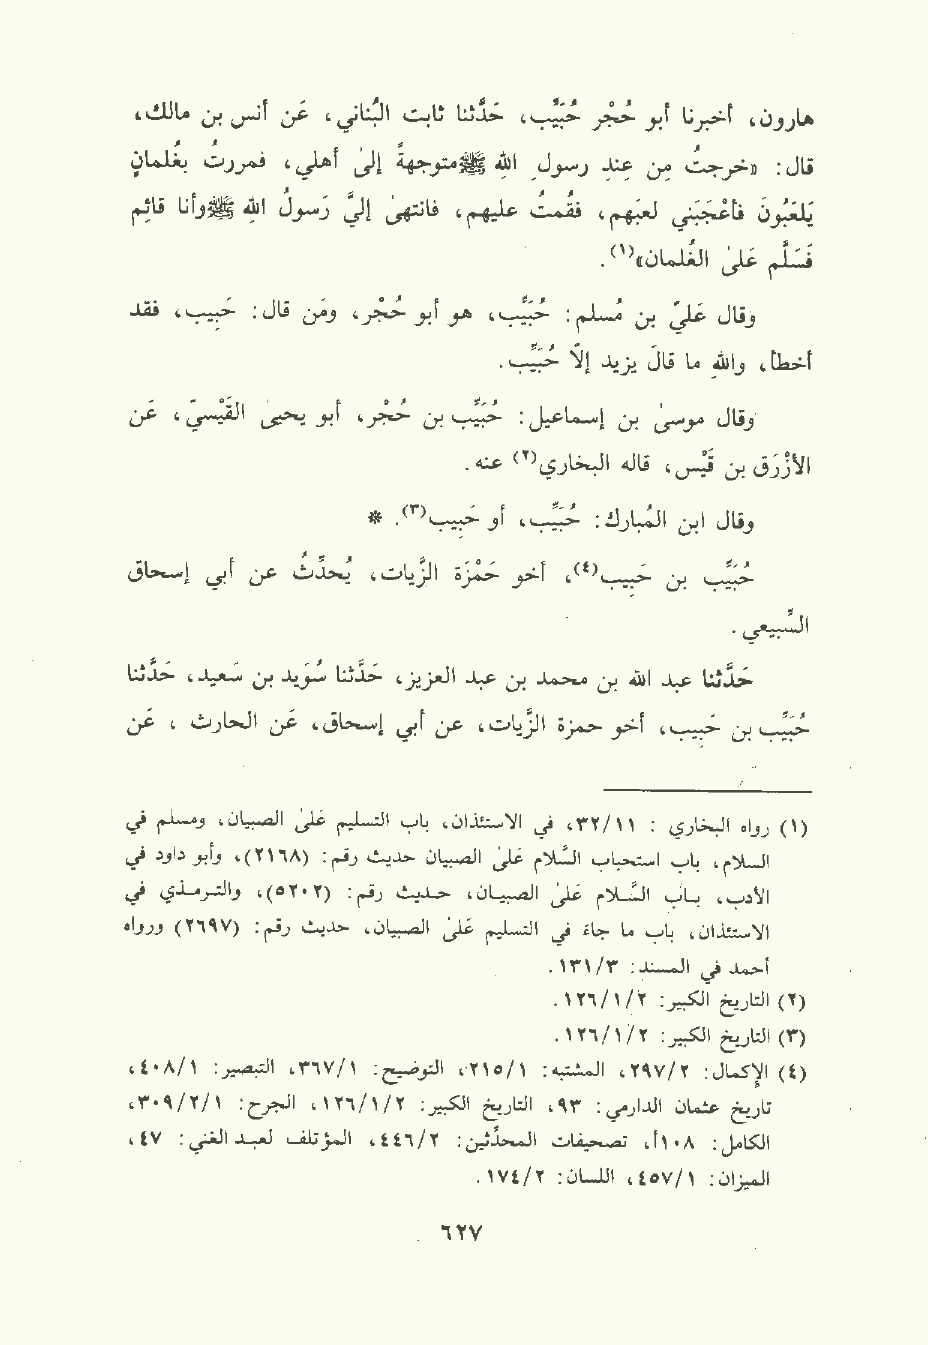 هارون، أخبرنا أبو حُجْر حُبَيِّب، حَدَّثنا ثابت البُناني، عَن أنس بن مالك،
قال: «خرجتُ من عندِ رسولِ الله ﷺ متوجهةً إلىٰ أهلي، فمررتُ بغُلمانٍ
يَلعَبُونَ فأعْجَبَني لعبَهم، فقُمتُ عليهم، فانتهىٰ إليَّ رَسولُ الله ﷺ وأنا قائِم
فَسَلَّم عَلىٰ الغُلمان»(١).
وقال عَليّ بن مُسلم: حُبَيِّب، هو أبو حُجْر، ومَن قال: حَبِيب، فقد
أخطأ، واللهِ ما قالَ يزيد إلاّ حُبَيِّب.
وقال موسىٰ بن إسماعيل: حُبَيِّب بن حُجْر، أبو يحيىٰ القَيْسيّ، عَن
الأزْرَق بن قَيْس، قاله البخاري(٢) عنه.
وقال ابن المُبارك: حُبَيِّب، أو حَبِيب(٣). *
حُبَيِّب بن حَبِيب(٤)، أخو حَمْزَة الزَّيات، يُحدِّثُ عن أبي إسحاق
السَّبيعي.
حَدَّثنا عبد الله بن محمد بن عبد العزيز، حَدَّثنا سُوَيد بن سَعيد، حَدَّثنا
حُبَيِّب بن حَبِيب، أخو حمزة الزَّيات، عن أبي إسحاق، عَن الحارث ، عَن
(١) رواه البخاري : ٣٢/١١، في الاستئذان، باب التسليم عَلىٰ الصبيان، ومسلم في
السلام، باب استحباب السَّلام عَلىٰ الصبيان حديث رقم: (٢١٦٨)، وأبو داود في
الأدب، باب السَّلام عَلىٰ الصبيان، حديث رقم: (٥٢٠٢)، والترمذي في
الاستئذان، باب ما جاء في التسليم عَلىٰ الصبيان، حديث رقم: (٢٦٩٧) ورواه
أحمد في المسند: ١٣١/٣.
(٢) التاريخ الكبير: ١٢٦/١/٢.
(٣) التاريخ الكبير: ١٢٦/١/٢.
(٤) الإكمال: ٢٩٧/٢، المشتبه: ٢١٥/١، التوضيح: ٣٦٧/١، التبصير: ٤٠٨/١،
تاريخ عثمان الدارمي: ٩٣، التاريخ الكبير: ١٢٦/١/٢، الجرح: ٣٠٩/٢/١،
الكامل: ١٠٨أ، تصحيفات المحدثين: ٤٤٦/٢، المؤتلف لعبد الغني: ٤٧،
الميزان: ٤٥٧/١، اللسان: ١٧٤/٢.
٦٢٧